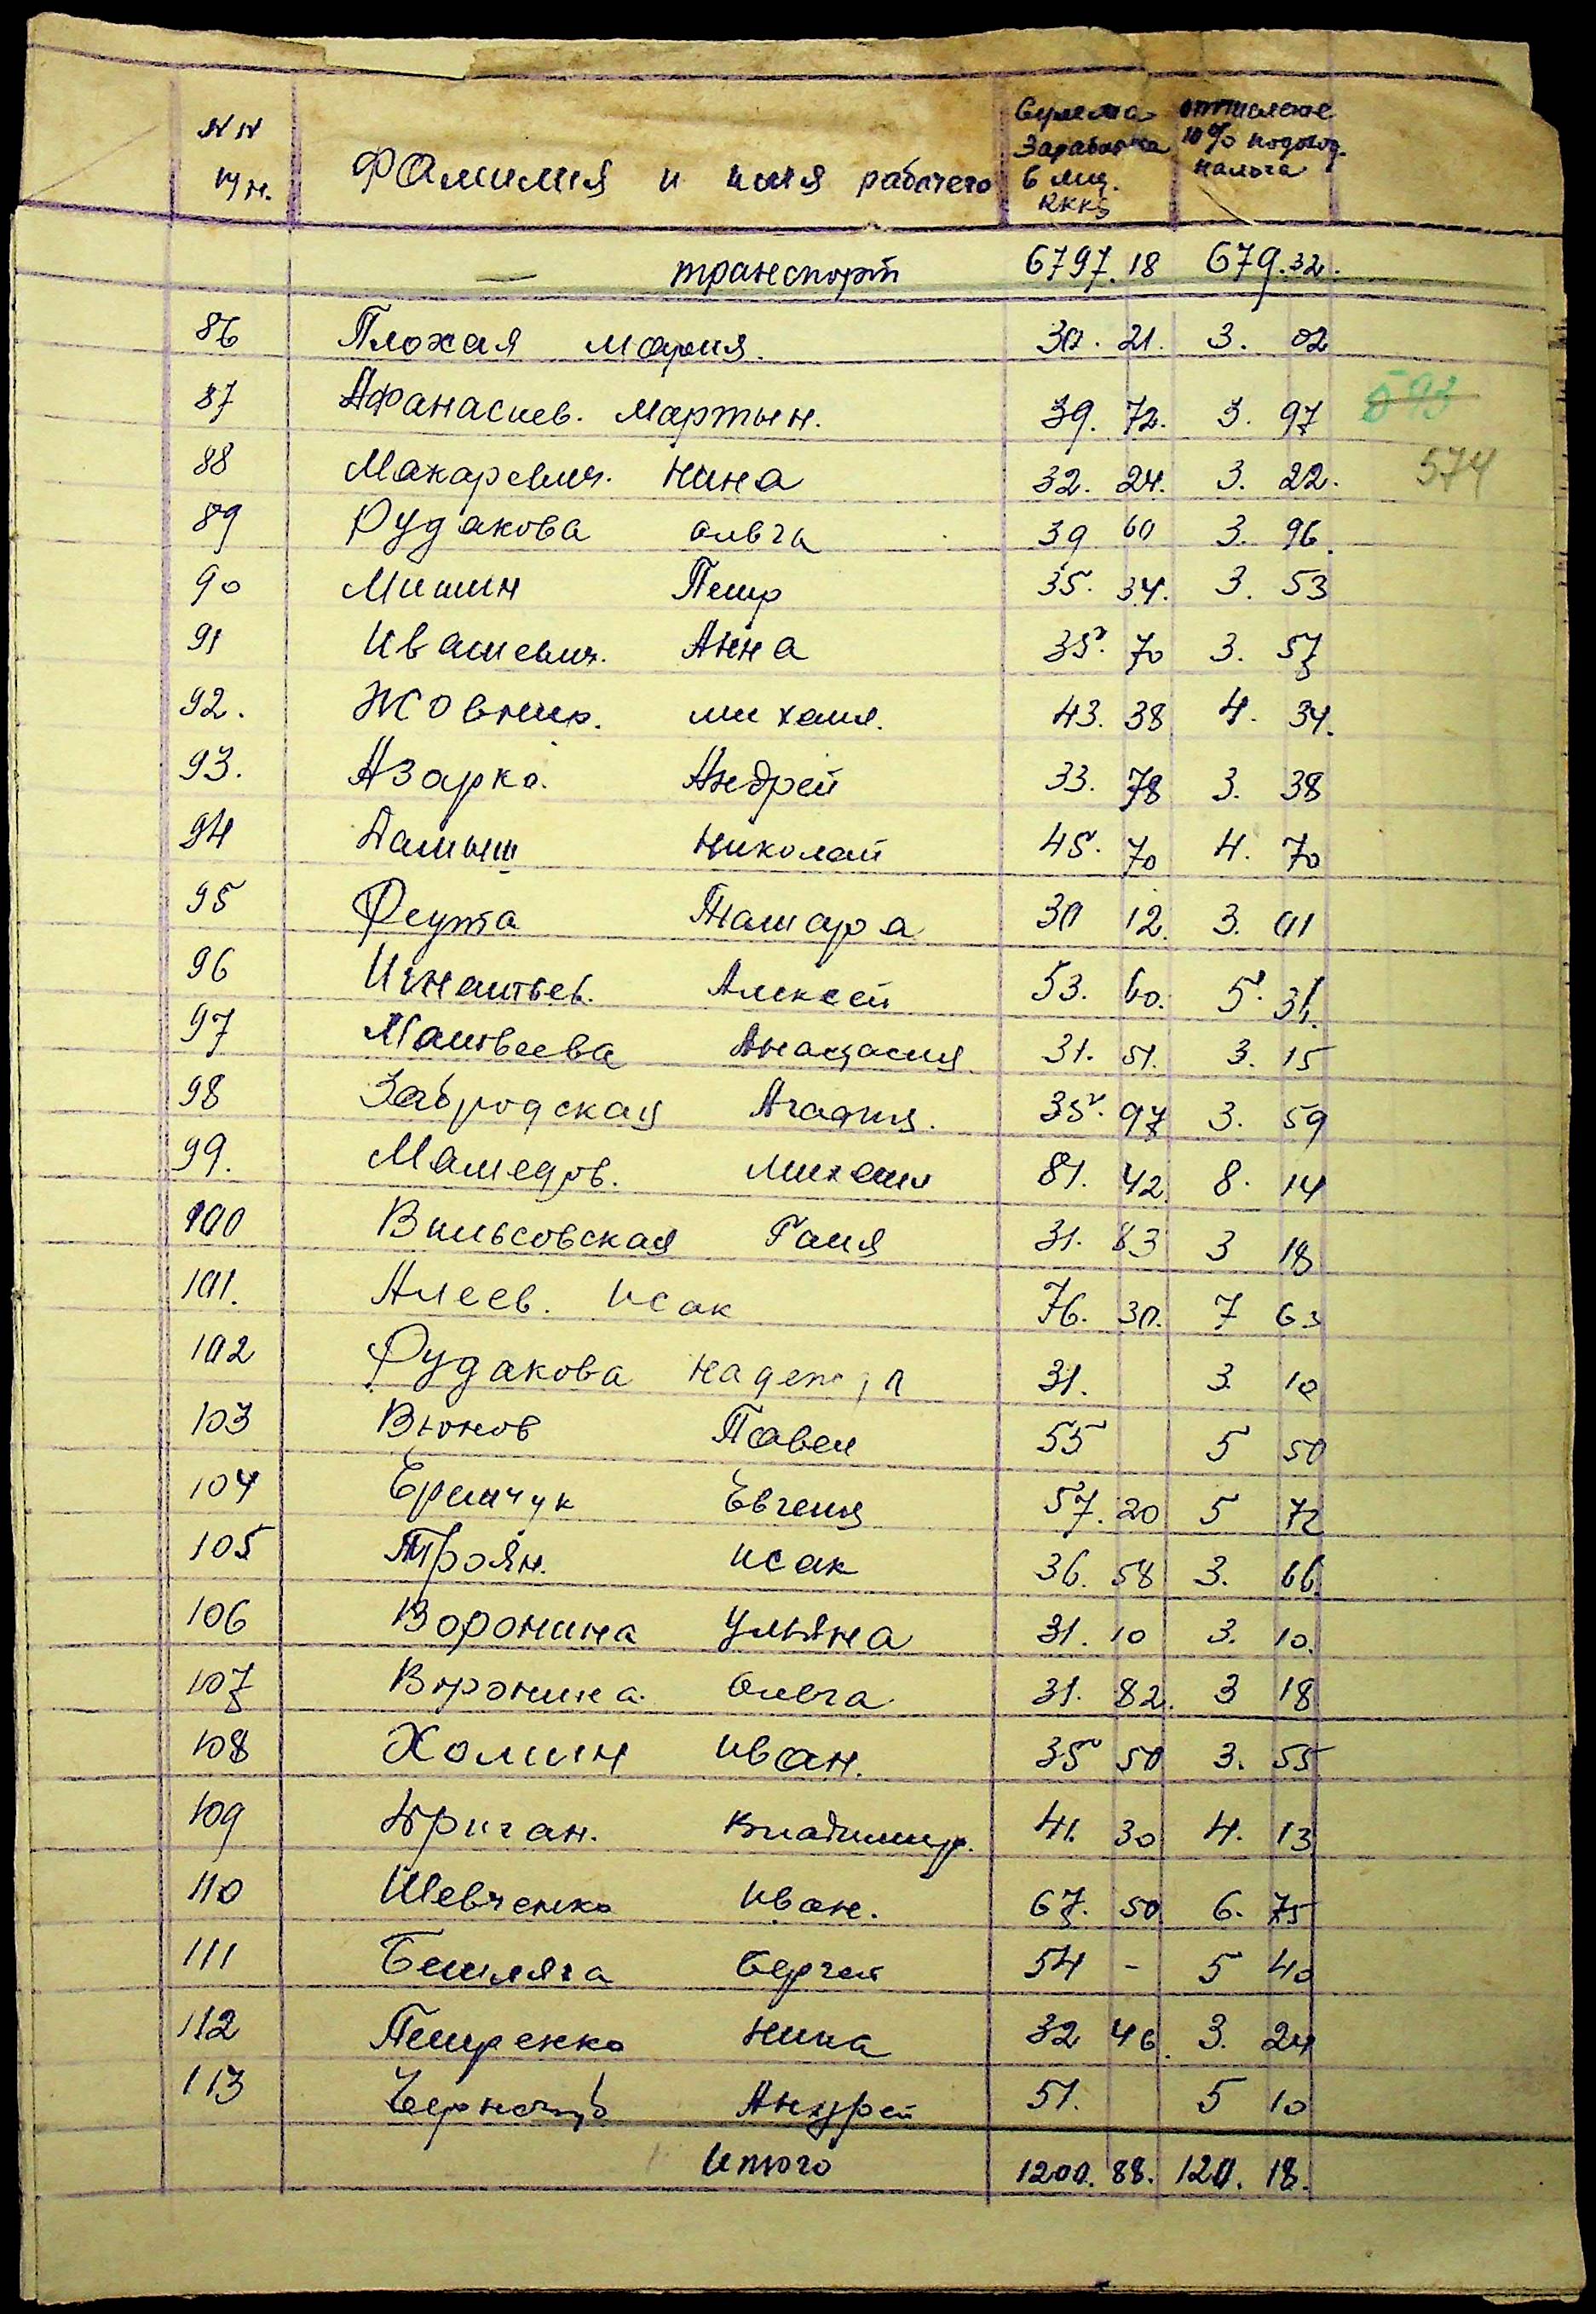 NN
пн.
Фамилия и имя рабочего
Сумма заработка в мец. RKKS
отчисление 10% подоход. налога
— транспорт 6797.18 679.32.
86 Плохая Мария. 30. 21. 3. 02
87 Афанасиев. Мартын. 39. 72. 3. 97 593
88 Макаревич. Нина 32. 24. 3. 22. 574
89 Рудакова Ольга 39 60 3. 96.
90 Мишин Петр 35. 34. 3. 53
91 Ивашевич. Анна 35. 70 3. 57
92. Жовнир. михаил. 43. 38 4. 34.
93. Азарко. Андрей 33. 78 3. 38
94 Николай 45. 70 4. 70
95 Реута Тамара 30 12. 3. 01
96 Игнатьев. Алексей 53. 60. 5.
97 Матвеева Анастасия 31. 51. 3. 15
98 Забродская Агафия. 35. 97 3. 59
99. Мамедов. Михаил 81. 42. 8. 14
100 Вильсовская Галя 31. 83 3 18
101. Алеев. Исак 76. 30. 7 63
102 Рудакова Надежда 31. 3. 10
103 Вюнов Павел 55 5 50
104 Еримчук Евгения 57. 20 5 72
105 Троян. Исак 36. 58 3. 66
106 Воронина Ульяна 31. 10 3. 10.
107 Воронина. Ольга 31. 82. 3 18
108 Холмин Иван. 35 50 3. 55
109 Владимир. 41. 30 4. 13
110 Шевченко Иван. 67. 50 6. 75
111 Бешляга Сергей 54 - 5 40
112 Петренко Нина 32 46. 3. 24
113 Чернозуб Андрей 51. 5 10
Итого 1200. 88. 120. 18.